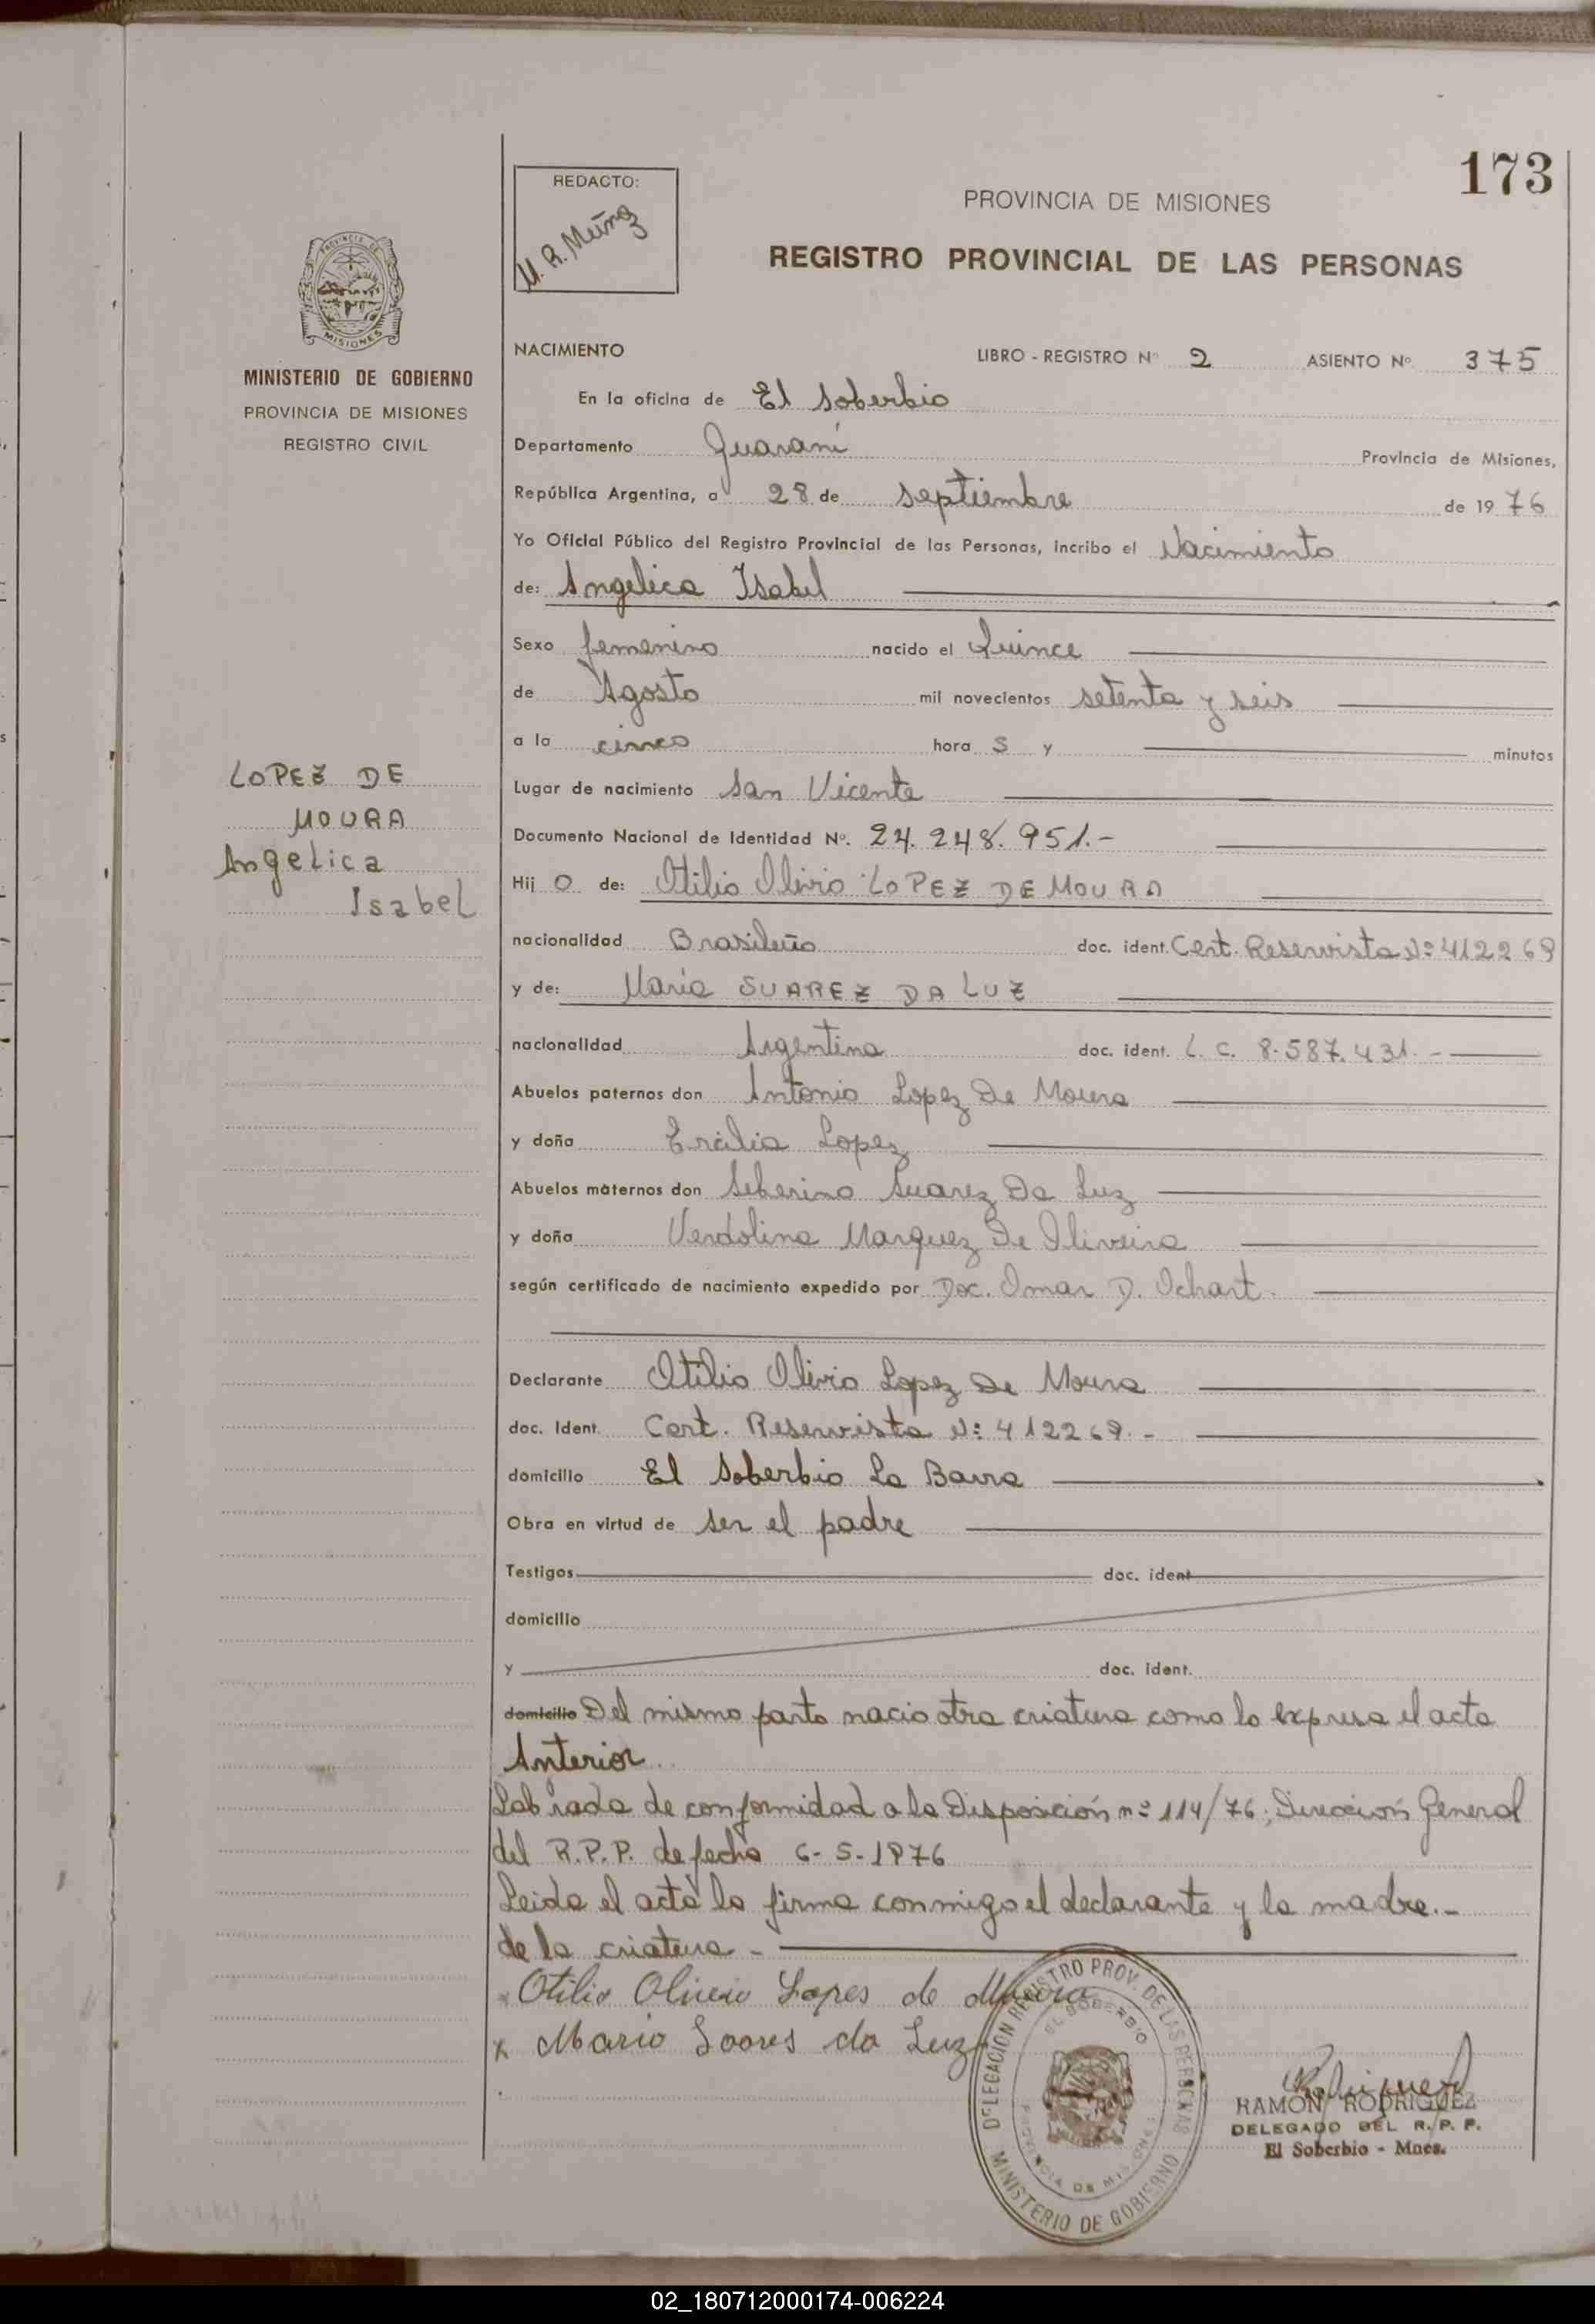 173
REDACTO:
M. R. Muñoz
PROVINCIA DE MISIONES
REGISTRO PROVINCIAL DE LAS PERSONAS
PROVINCIA DE
MISIONES
MINISTERIO DE GOBIERNO
PROVINCIA DE MISIONES
REGISTRO CIVIL
LOPEZ DE
MOURA
Angelica
Isabel
NACIMIENTO LIBRO - REGISTRO Nº 2 ASIENTO Nº 375
En la oficina de El Soberbio
Departamento Guaraní Provincia de Misiones,
República Argentina, a 28 de septiembre de 1976
Yo Oficial Público del Registro Provincial de las Personas, incribo el Nacimiento
de: Angelica Isabel
Sexo femenino nacido el Quince
de Agosto mil novecientos setenta y seis
a la cinco hora s y minutos
Lugar de nacimiento San Vicente
Documento Nacional de Identidad Nº. 24.248.951.-
Hij o de: Otilio Olivio LOPEZ DE MOURA
nacionalidad Brasileño doc. ident. Cert. Reservista Nº 412269
y de: Maria SUAREZ DA LUZ
nacionalidad Argentina doc. ident. L. C. 8.587.431.-
Abuelos paternos don Antonio Lopez De Moura
y doña Lopez
Abuelos maternos don Seberino Suarez Da Luz
y doña Verdolina Marquez De Oliveira
según certificado de nacimiento expedido por Doc. Omar D. Ochart.
Declarante Otilio Olivio Lopez De Moura
doc. Ident. Cert. Reservista Nº 412269.-
domicilio El Soberbio La Barra
Obra en virtud de ser el padre
Testigos doc. ident
domicilio
y doc. ident.
domicilio Del mismo parto nacio otra criatura como lo expresa el acta
Anterior.
Labrada de conformidad a la Disposición nº 114/76, Dirección General
del R.P.P. de fecha 6-5-1976
Leida el acta la firma conmigo el declarante y la madre.-
de la criatura -
x Otilio Oliveio Lopes de Moura
x Mario Soares da Luz
DELEGACION REGISTRO PROV. DE LAS PERSONAS
EL SOBERBIO
PROVINCIA DE MISIONES
MINISTERIO DE GOBIERNO
RAMON RODRIGUEZ
DELEGADO DEL R. P. P.
El Soberbio - Mnes.
02_180712000174-006224